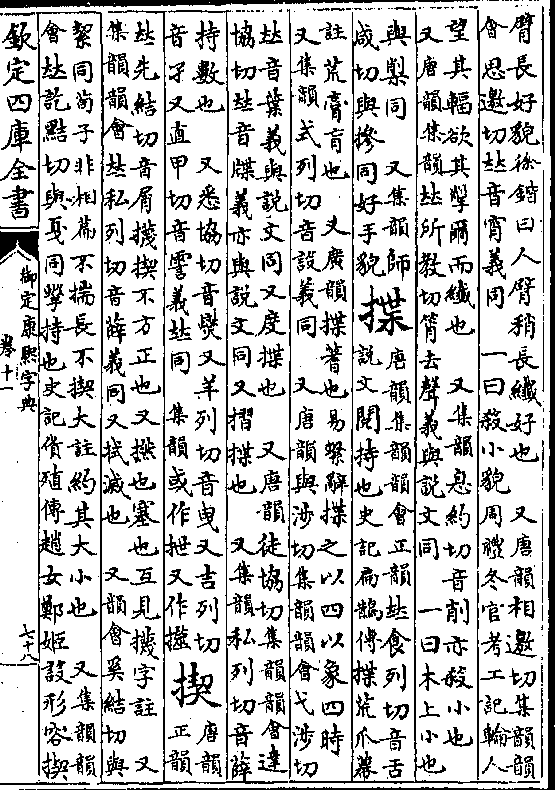 臂長好貌徐鍇曰人臂稍長纖好也　又唐韻相邀切集韻韻
會思邀切𠀤音宵義同　一曰殺小貌周禮冬官考工記輪人
望其輻欲其揱爾而纖也　又集韻息約切音削亦殺小也
又唐韻集韻𠀤所教切筲去聲義與說文同　一曰木上小也
與掣同　又集韻師
咸切與摻同好手貌
揲
唐韻集韻韻會正韻𠀤食列切音舌
說文閱持也史記扁鵲傳揲荒爪幕
註荒膏肓也　又廣韻揲蓍也易繫辭揲之以四以象四時
又集韻式列切音設義同　又唐韻與涉切集韻韻會弋涉切
𠀤音葉義與說文同又度揲也　又唐韻徒協切集韻韻會達
協切𠀤音牒義亦與說文同又摺揲也　又集韻私列切音薛
持數也　又悉協切音燮又羊列切音曳又吉列切
音孑又直甲切音霅義𠀤同　集韻或作抴又作擛
揳
唐韻
正韻
𠀤先結切音屑㩢揳不方正也又㩢也塞也互見㩢字註　又
集韻韻會𠀤私列切音薛義同又拭滅也　又韻會奚結切與
絜同荀子非相篇不揣長不揳大註約其大小也　又集韻韻
會𠀤訖黠切與戛同擊持也史記貨殖傳趙女鄭姬設形容揳
欽定四庫全書
御定康熙字典
卷十一
七十八